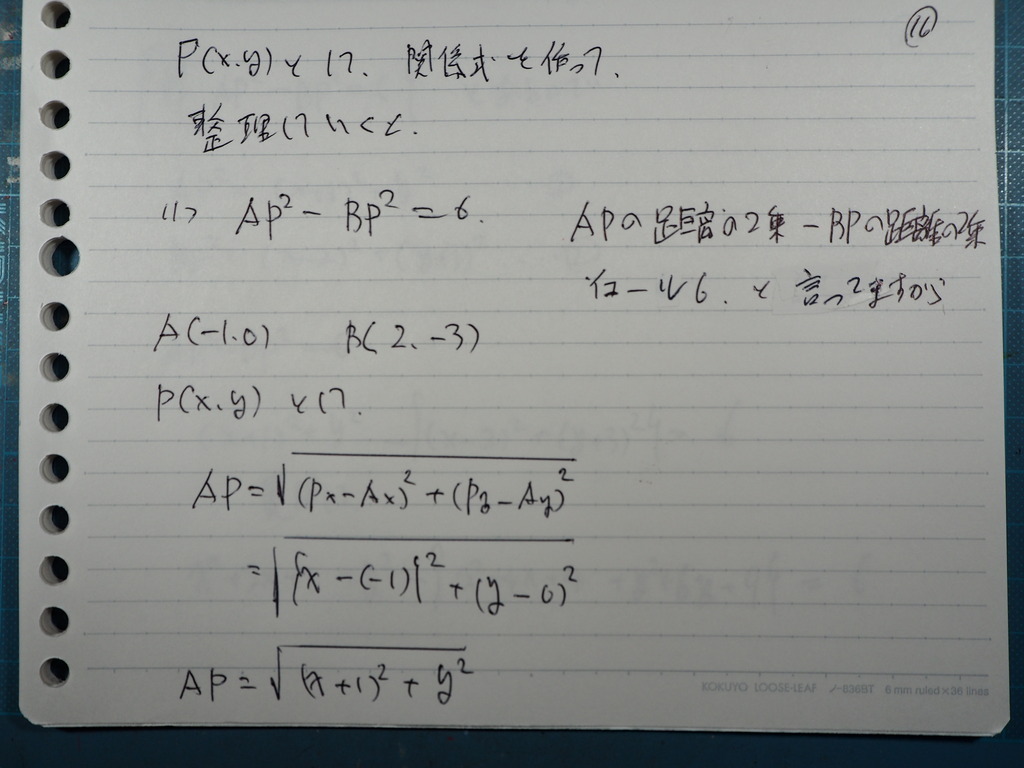 ⑯
P(x.y) として、関係式を作って、
整理していくと、
(1) AP² - BP² = 6.
APの距離の2乗 - BPの距離の2乗
イコール6、と言ってますから
A(-1.0) B(2、-3)
P(x.y) として、
AP = √(Px-Ax)² + (Py-Ay)²
= √{x-(-1)}² + (y-0)²
AP = √(x+1)² + y²
KOKUYO LOOSE-LEAF ノ-836BT 6 mm ruled×36 lines